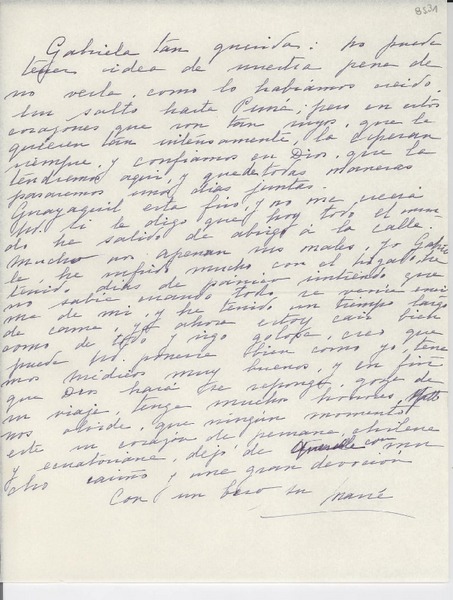 8531
Gabriela tan querida: no puede
tener idea de nuestra pena de
no verla, como lo habíamos creído.
Un salto hasta Puná; pero en estos
corazones que son tan suyos, que la
quieren tan intensamente, la esperan
siempre, y confiamos en Dios, que la
tendremos aquí, y que de todas maneras
pasaremos unos días juntas.
Guayaquil está frío, y no me creerá
Ud. si le digo que hoy todo el mun-
do he salido de abrigo á la calle.
Mucho me apenan sus males, yo Gabrie-
la, he sufrido mucho con el hígado, he
tenido días de pánico sintiendo que
no sabía cuando todo se venía enci-
ma de mí, y he tenido un tiempo largo
de cama, y ahora estoy casi bien
como de todo y sigo golosa, creo que
puede Ud. ponerse bien como yo, tene
mos médicos muy buenos, y en fin
que Dios hará se reponga, goze de
su viaje, tenga muchos honores,
nos olvide, que ningún momento
este su corazón de peruana, chilena
y ecuatoriana, dejó de quererla con mu
cho cariño y una gran devoción
Con un beso su